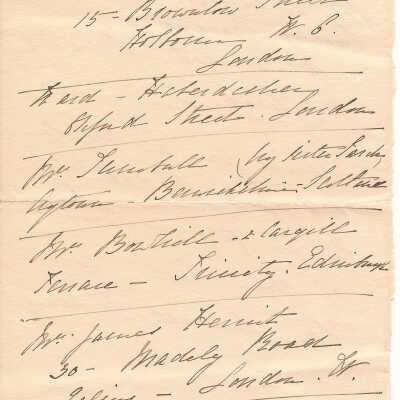 15 - Brownlow Street
Holborn W. C.
London
Ward - Haberdasher
Oxford Street. London
Mrs. Turnbull
Ayton - Berwickshire Scotland
Mrs. Boxhill - 2 Cargill
Terrace - Trinity. Edinburgh
Mrs. James Hewit
30 - Madely Road
Ealing - London. W.